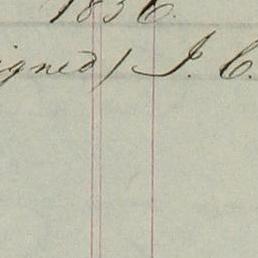 1836.
igned) J. C.